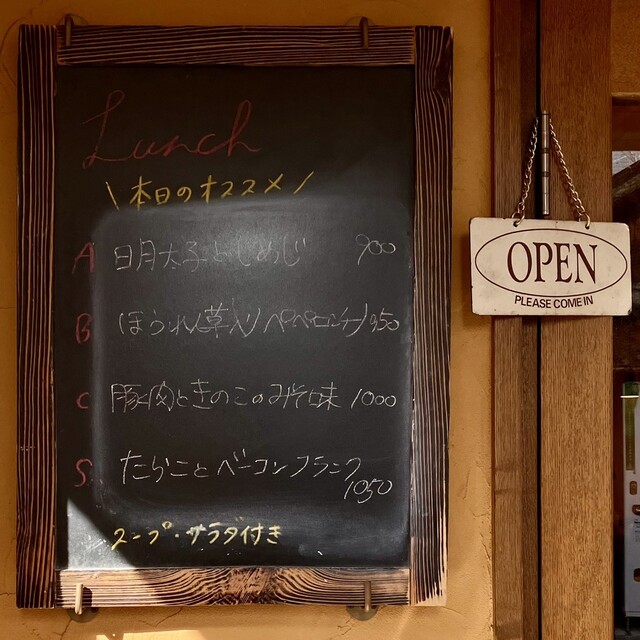 Lunch
\ 本日のオススメ /
A 明太子としめじ 900
B ほうれん草入りペペロンチーノ 950
C 豚肉ときのこのみそ味 1000
S たらことベーコンフランク 1050
スープ・サラダ付き
OPEN
PLEASE COME IN